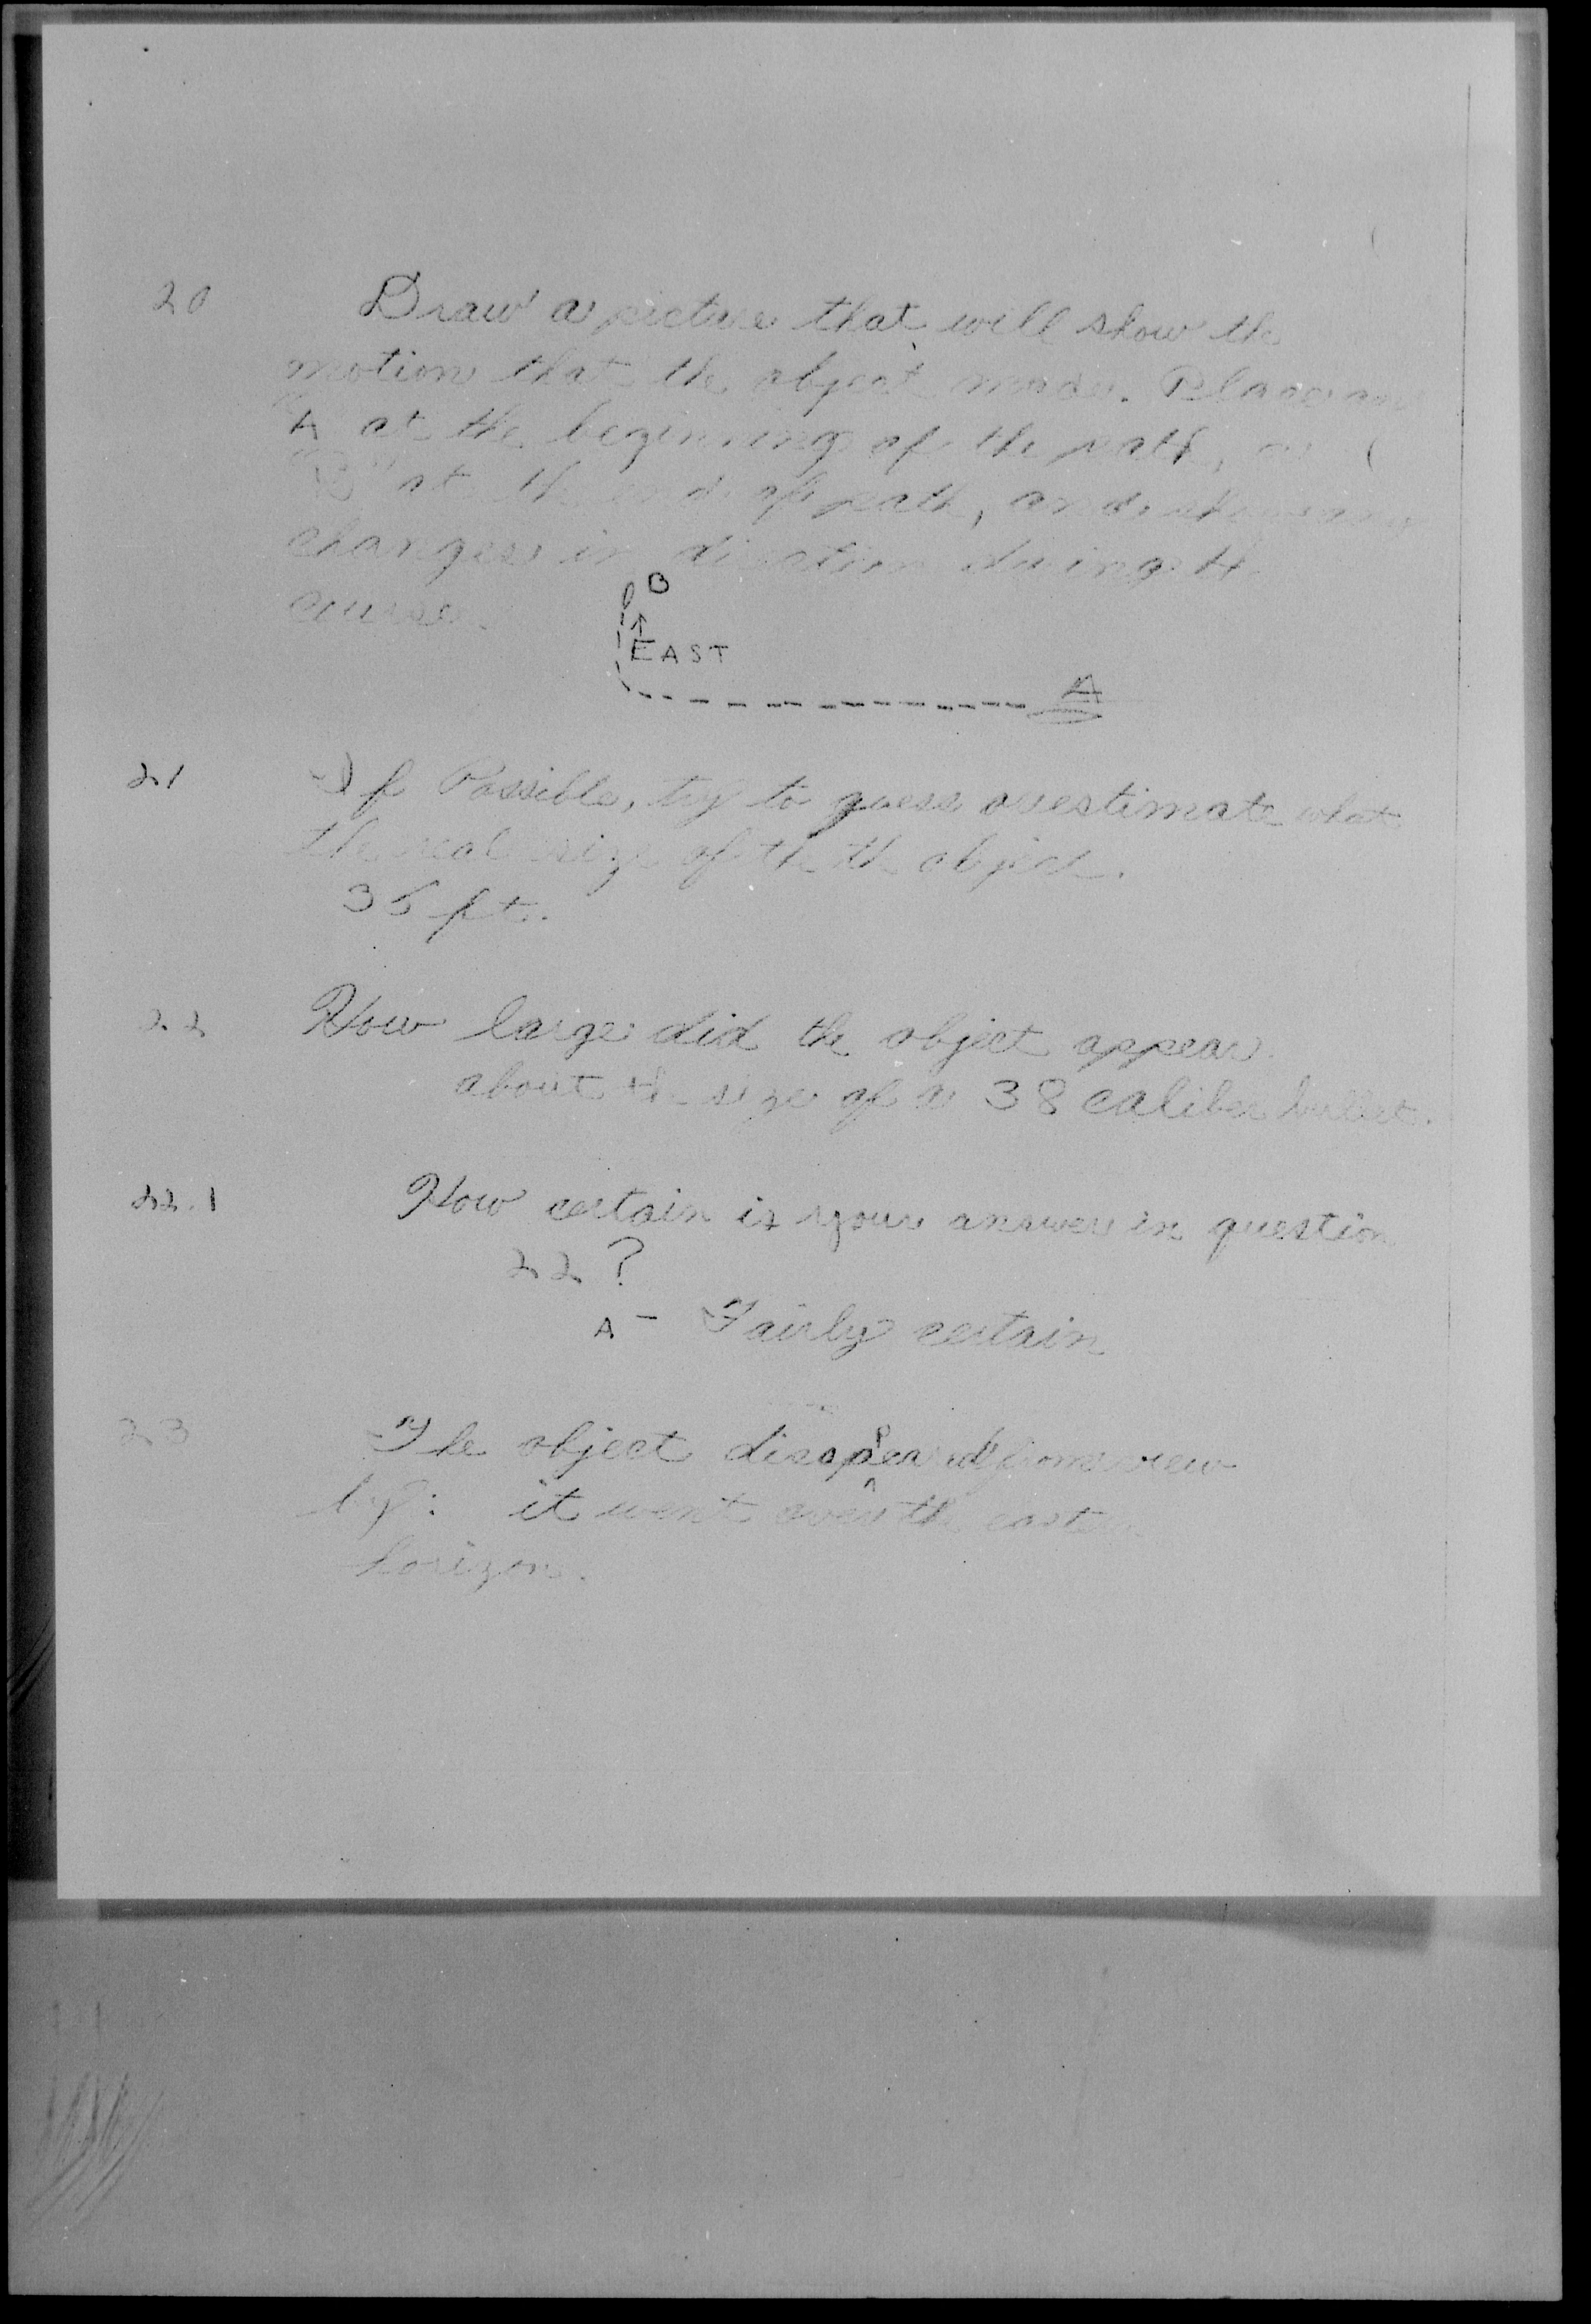 20 Draw a picture that will show the
motion that the object made. Place an
"A" at the beginning of the path, a
"B" at the end of path, and show any
changes in direction during the
course.
B
EAST
A
21 If Possible, try to guess or estimate what
the real size of th th object.
35 ft.
22 How large did the object appear.
about the size of a 38 caliber bullet.
22.1 How certain is your answer in question
22?
A - Fairly certain
23 The object disappeared from view
by: it went over the eastern
horizon.